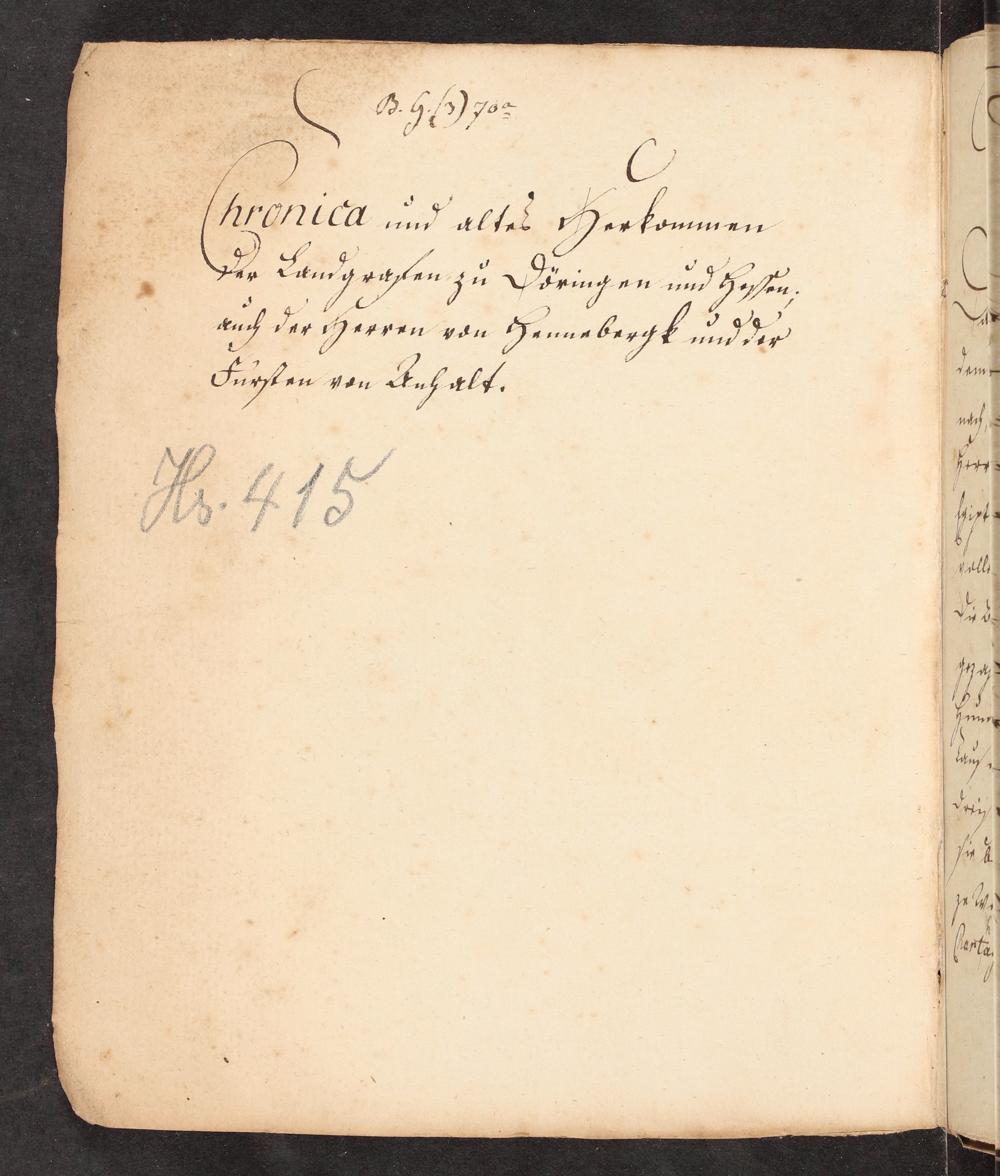 B. H. (3) 70a
Chronica und altes Herkommen
der Landgrafen zu Döringen und Hessen;
auch der Herren von Hennebergk und der
Fürsten von Anhalt.
Hs. 415
dem
nach,
Herr
Egipt